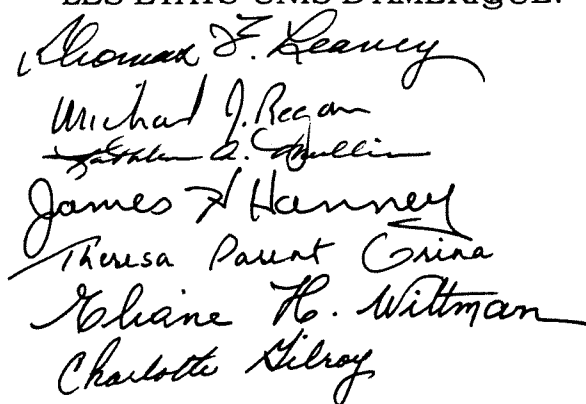 LES ÉTATS-UNIS D'AMÉRIQUE:
Thomas F. Leavey
Michael J. Regan
Kathleen A.
James H Hanney
Theresa Parent
Eliane H. Wittman
Charlotte Gilroy